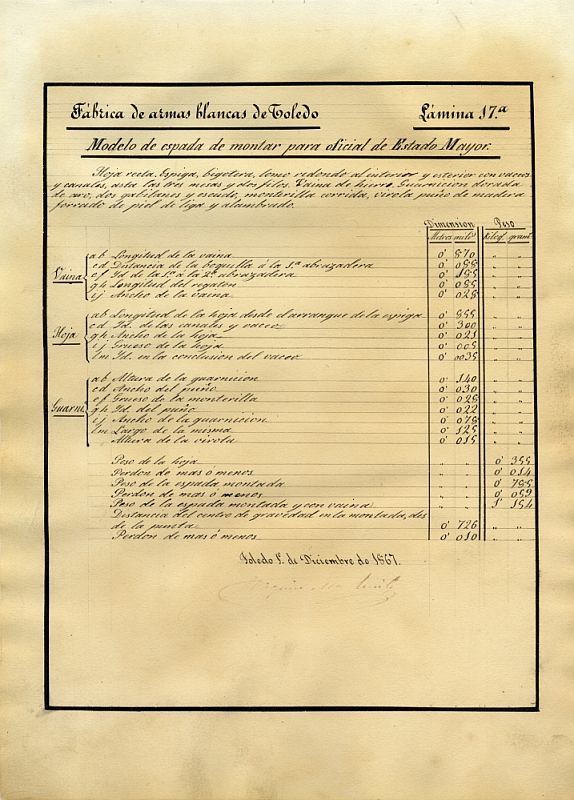 Fábrica de armas blancas de Toledo Lámina 17.ª
Modelo de espada de montar para oficial de Estado Mayor.
Hoja recta. Espiga, bigotera, lomo redondo al interior y esterior con vaceos
y canales, asta las tres mesas y dos filos. Vaina de hierro. Guarnicion dorada
de aro, dos gabilanes y escudo, monterilla corrida, virola puño de madera
forrado de piel de liga y alambrado.
Dimension Peso
Metros mili.s Kilog. gram.s
Vaina
ab Longitud de la vaina 0' 870 " "
cd Distancia de la boquilla á la 1.ª abrazadera 0' 055 " "
ef Id de la 1.ª á la 2.ª abrazadera 0' 185 " "
gh Longitud del regaton 0' 055 " "
ij Ancho de la vaina 0' 028 " "
Hoja
ab Longitud de la hoja desde el arranque de la espiga 0' 855 " "
cd Id. de las canales y vaceo 0' 300 " "
gh Ancho de la hoja 0' 021 " "
ij Grueso de la hoja 0' 005 " "
lm Id. en la conclusion del vaceo 0' 0035 " "
Guarn.
ab Altura de la guarnicion 0' 140 " "
cd Ancho del puño 0' 030 " "
ef Grueso de la monterilla 0' 025 " "
gh Id. del puño 0' 022 " "
ij Ancho de la guarnicion 0' 078 " "
lm Largo de la misma 0' 125 " "
Altura de la virola 0' 015 " "
Peso de la hoja " " 0' 355
Perdon de mas ó menos " " 0' 014
Peso de la espada montada " " 0' 785
Perdon de mas ó menos " " 0' 059
Peso de la espada montada y con vaina " " 1' 154
Distancia del centro de gravedad en la montada, des
de la punta 0' 726 " "
Perdon de mas ó menos 0' 010 " "
Toledo 1.º de Diciembre de 1867.